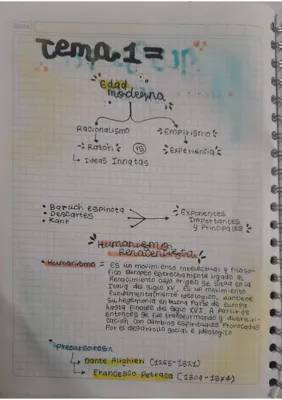 Tema 1 =
Edad
moderna
Racionalismo Empirismo
↳ Razón VS ↳ Experiencia
↳ Ideas Innatas
• Baruch Espinoza
• Descartes
• Kant
Exponentes
Importantes
y Principales
Humanismo
Renacentista
• Humanismo = Es un movimiento intelectual y filoso-
fico europeo estrechamente ligado al
Renacimiento cuyo origen se sitúa en la
Italia del siglo XV. Es un movimiento
Fundamentalmente ideologico, mantiene
su hegemonia en buena Parte de Europa
hasta finales del siglo XVI. A partir de
entonces se fue transformando y diversifi-
cación con cambios espirituales provocados
Por el desarrollo social e ideologico
Precursores
↳ Dante Alighieri (1265-1321)
↳ Francesco Petraca (1304-1374)